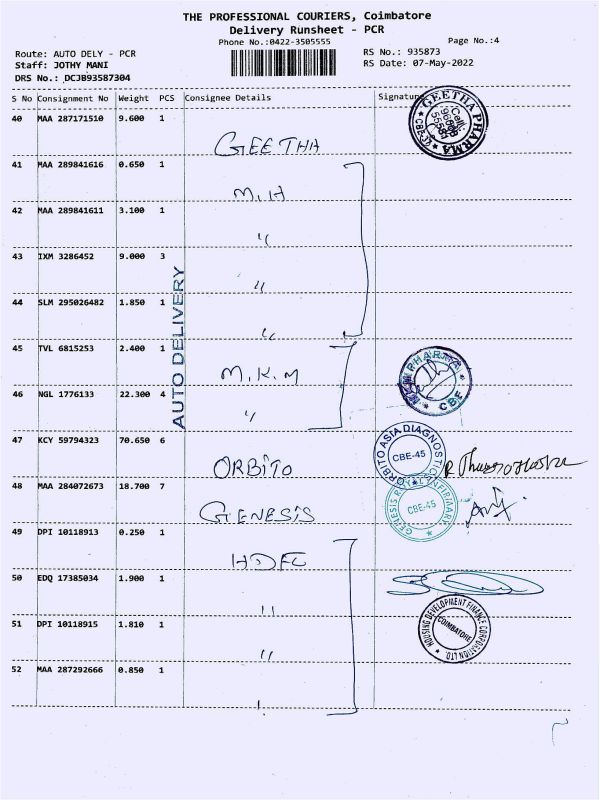 THE PROFESSIONAL COURIERS, Coimbatore
Delivery Runsheet - PCR
Phone No.:0422-3505555
Page No.:4
Route: AUTO DELY - PCR
RS No.: 935873
Staff: JOTHY MANI
RS Date: 07-May-2022
DRS No.: DCJB93587304
S No Consignment No Weight PCS Consignee Details Signature
40 MAA 287171510 9.600 1
GEETHA
GEETHA PHARMA
41 MAA 289841616 0.650 1
M.H
42 MAA 289841611 3.100 1
"
43 IXM 3286452 9.000 3
"
44 SLM 295026482 1.850 1
"
AUTO DELIVERY
45 TVL 6815253 2.400 1
M.K.M
PHARMA
CBE
46 NGL 1776133 22.300 4
"
47 KCY 59794323 70.650 6
ORBITO
ORBITO ASIA DIAGNOSTIC
CBE-45
48 MAA 284072673 18.700 7
GENESIS
CBE-45
49 DPI 10118913 0.250 1
HDFC
50 EDQ 17385034 1.900 1
"
HOUSING DEVELOPMENT FINANCE CORPORATION LTD.
COIMBATORE
51 DPI 10118915 1.810 1
"
52 MAA 287292666 0.850 1